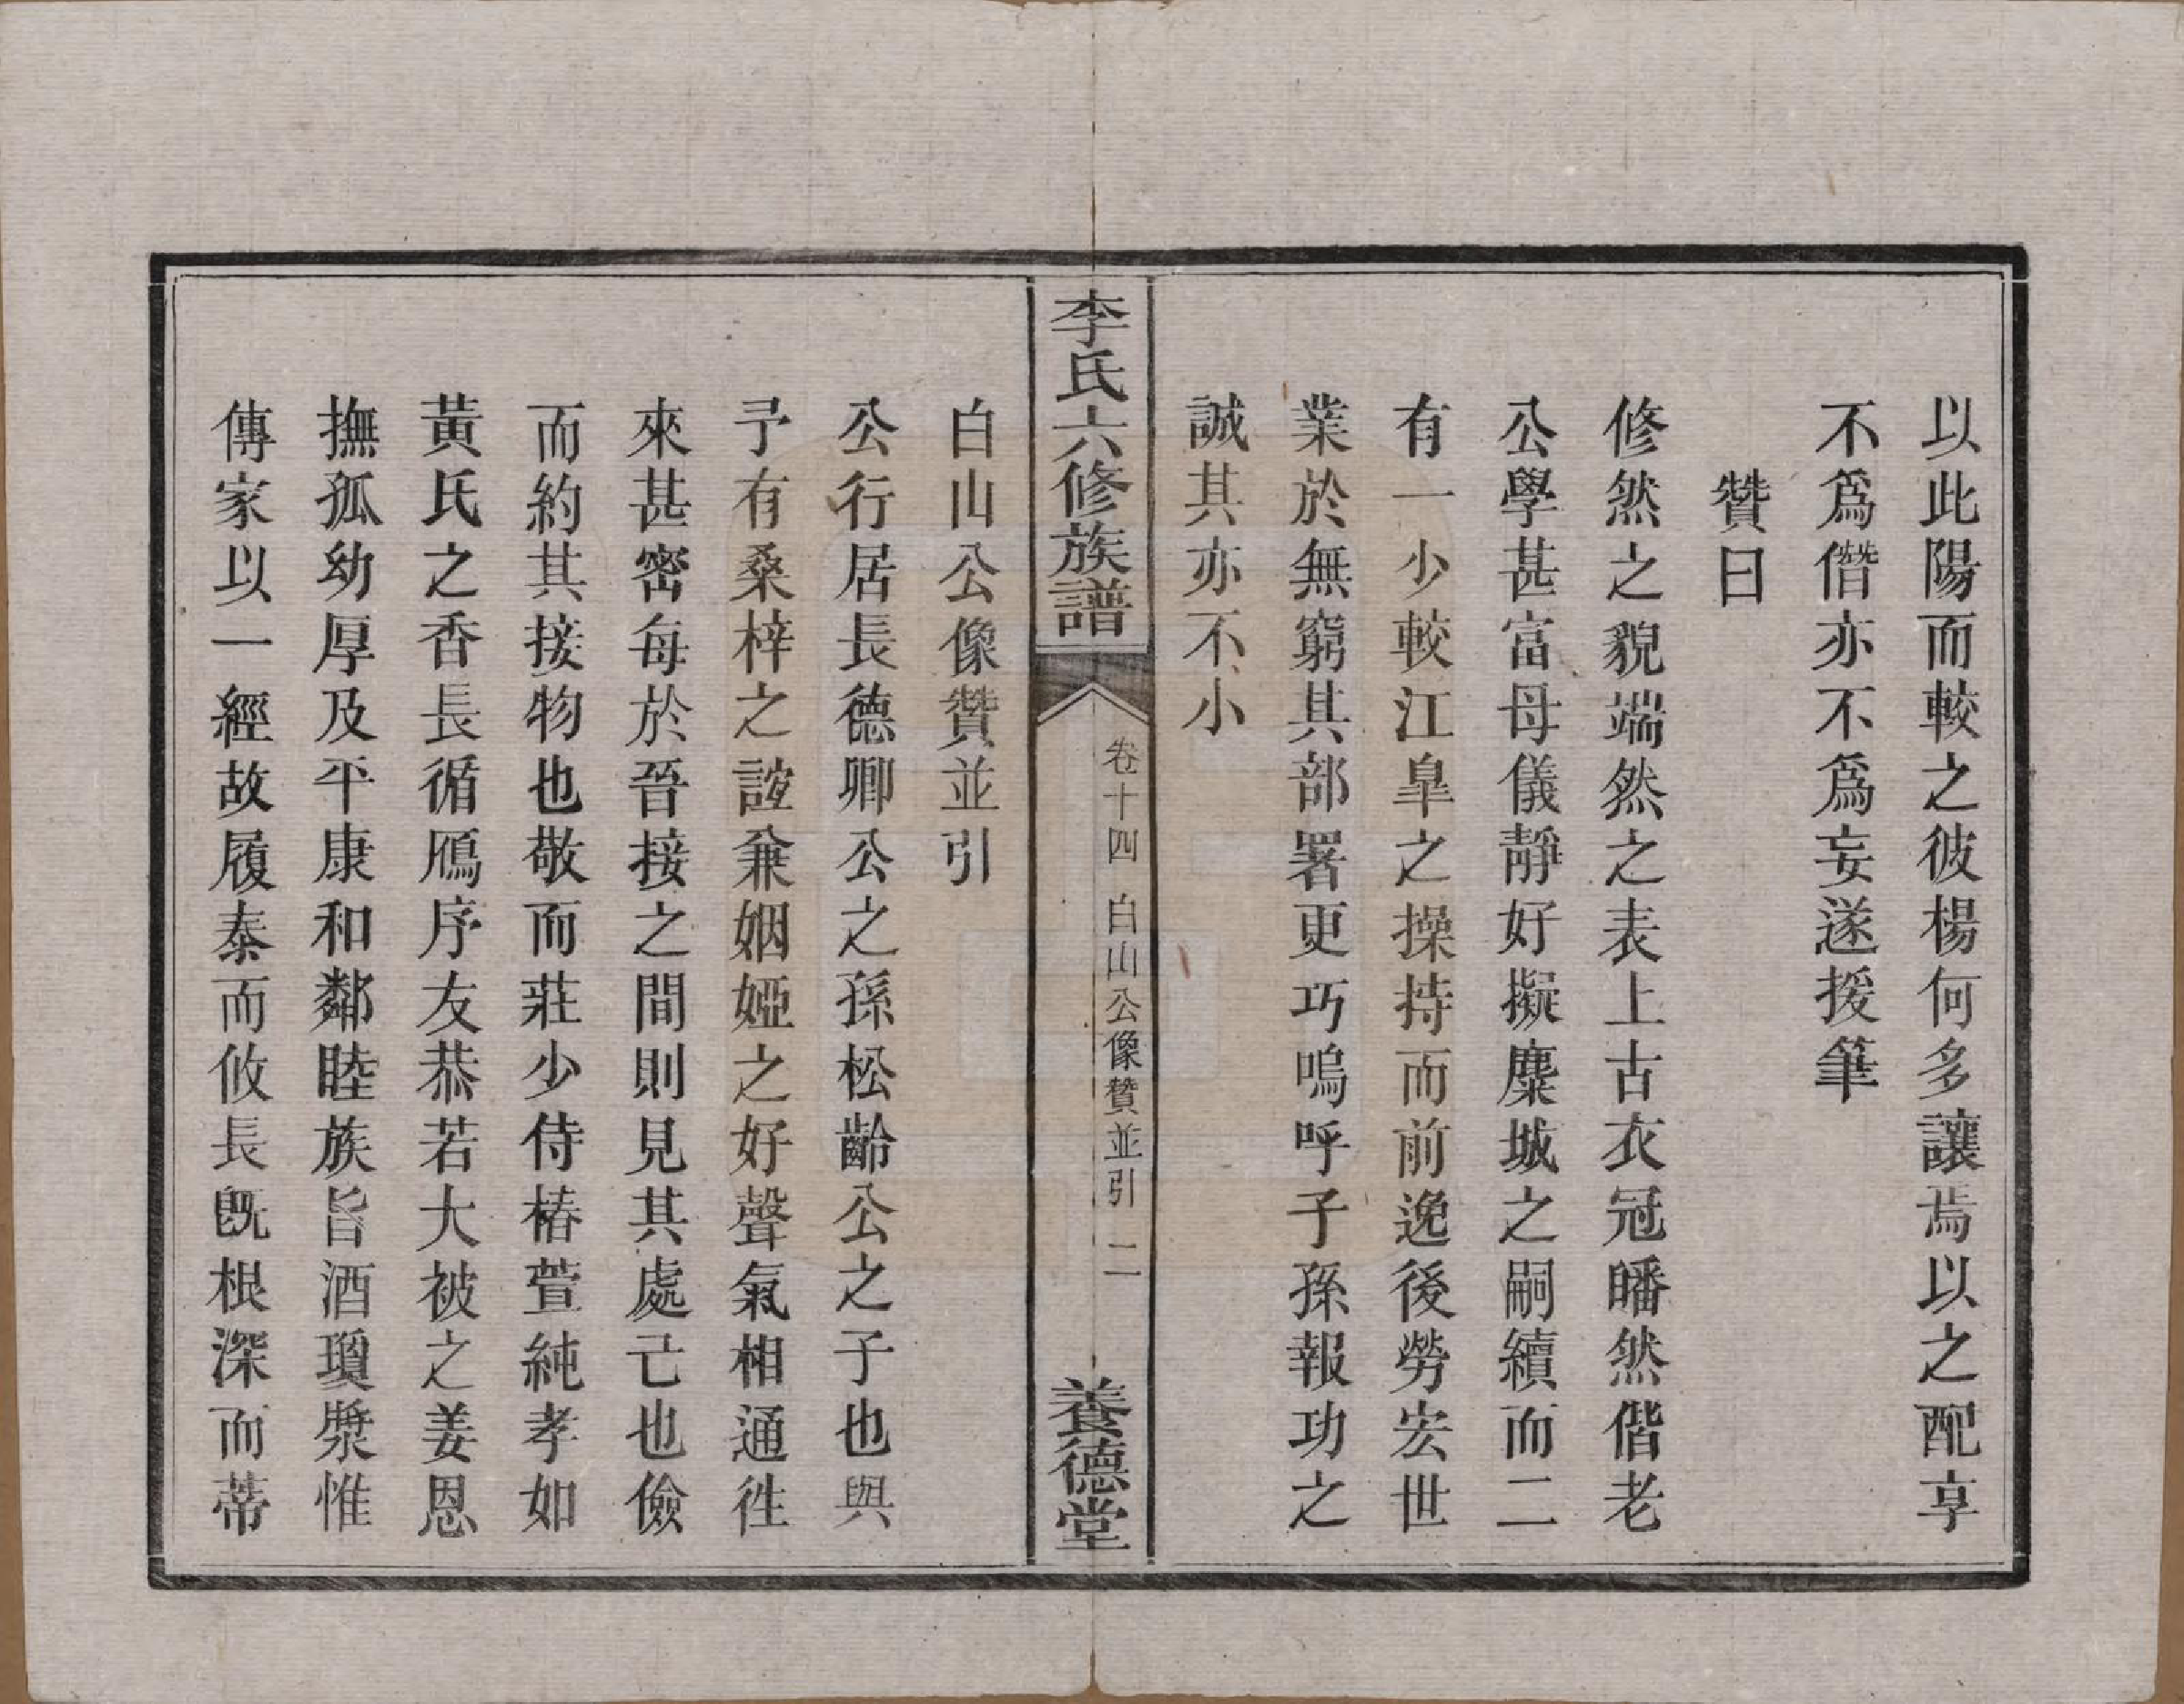 以此陽而較之彼楊何多讓焉以之配享
不爲僭亦不爲妄遂援筆
贊曰
修然之貌端然之表上古衣冠皤然偕老
公學甚富母儀靜好擬麋城之嗣續而二
有一少較江臯之操持而前逸後勞宏世
業於無窮其部署更巧嗚呼子孫報功之
誠其亦不小
李氏六修族譜
卷十四 白山公像贊並引 二
養德堂
白山公像贊並引
公行居長德卿公之孫松齡公之子也與
予有桑梓之誼兼姻婭之好聲氣相通徃
來甚密每於晉接之間則見其處己也儉
而約其接物也敬而莊少侍椿萱純孝如
黃氏之香長循鴈序友恭若大被之姜恩
撫孤幼厚及平康和鄰睦族旨酒瓊漿惟
傳家以一經故履泰而攸長旣根深而蒂